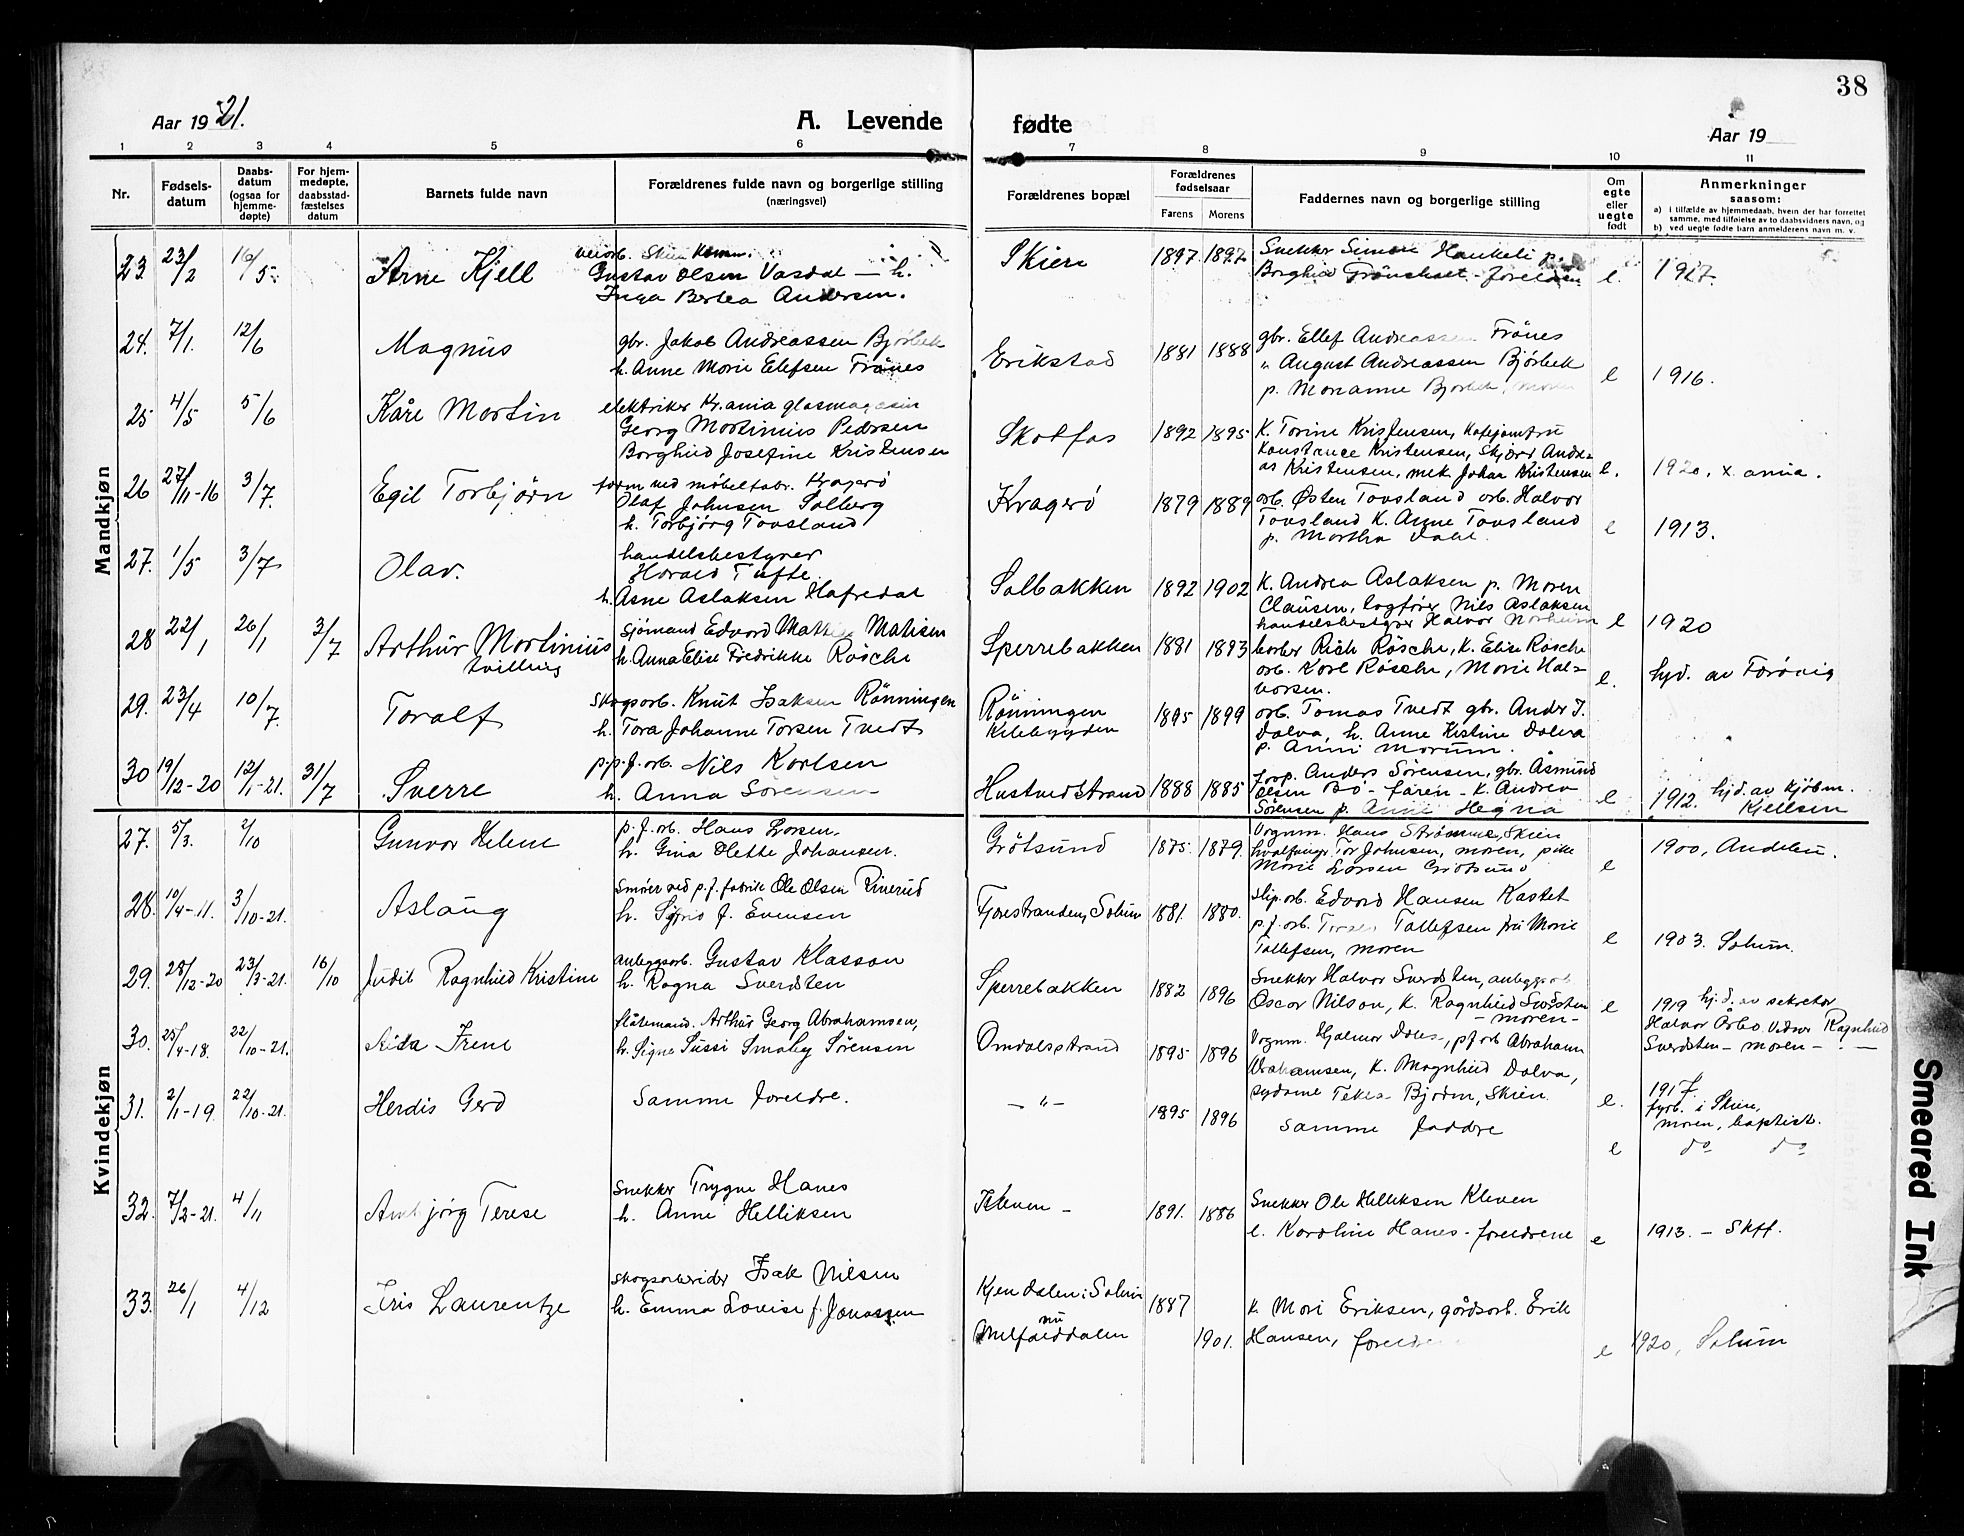 38
Aar 1921.
A. Levende fødte
Aar 19
1 2 3 4 5 6 7 8 9 10 11
Nr.
Fødsels-
datum
Daabs-
datum
(ogsaa for
hjemme-
døpte)
For hjem-
medøpte,
daabsstad-
fæstelses
datum
Barnets fulde navn
Forældrenes fulde navn og borgerlige stilling
(næringsvei)
Forældrenes bopæl
Forældrenes
fødselsaar
Farens Morens
Faddernes navn og borgerlige stilling
Om
egte
eller
uegte
født
Anmerkninger
saasom:
a) i tilfælde av hjemmedaab, hvem der har forrettet
samme, med tilføielse av to daabsvidners navn, og
b) ved uegte fødte barn anmelderens navn m. v.
Mandkjøn
23 23/2 16/5 Arne Kjell
veiarb. Skien Komm.
Gustav Olsen Vasdal — h.
Inga Bertea Andersen.
Skien 1897 1897
Snekker Simon Haukeli p.
Borghild Grönstset - foreldren
e. 1917.
24. 7/1. 12/6 Magnus
gbr. Jakob Andreassen Bjørbek
h. Anne Marie Elefsen Frånes
Erikstad 1881 1888
gbr. Ellef Andreassen Frånes
" August Andreassen Bjørbek
p. Marianne Bjørbek, moren
e 1916.
25 4/5 5/6 Kåre Martin
elektriker Kr.ania glasmagasin
Georg Martinius Pedersen
Borghild Josefine Kristensen
Skotfos 1892 1895
K. Torine Kristensen,
Konstance Kristensen, Andre-
as Kristensen, mek. Johan Kristensen
e. 1920, x ania.
26 27/11-16 3/7. Egil Torbjørn
form ved møbelfabr. Kragerø
Olaf Johnsen Solberg
h. Torbjørg Tovsland
Kragerö 1879 1889
arb. Østen Tovsland arb. Halvor
Tovsland K. Anne Tovsland
p. Martha Dale.
e 1913.
27. 1/5 3/7 Olav.
handelsbestyrer
Harald Tufte.
h. Asne Aslaksen Hafredal
Solbakken 1892 1902
K. Andrea Aslaksen p. Maren
Clausen, Nils Aslaksen
handelsbestyrer Halvor Norheim
e 1920
28 22/1 26/1 3/7 Arthur Martinius
tvilling
sjömand Edvard Mathisen
h. Anna Elise Fredrikke Rösche
Sperrebakken 1881 1893
Rösche, K. Elise Rösche
arb. Karl Rösche, Marie Hal-
vorsen.
e. hjd. av
29. 23/4 10/7. Toralf
skogsarb. Knut Isaksen Rønningen
h. Tora Johanne Torsen Tvedt
Rønningen
Kilebygden 1895 1899
arb. Tomas Tvedt gbr. Ander J.
Dalva, h. Anne Kistine Dalva
p. Anni Morum.
30 19/12-20 12/1-21. 31/7 Sverre
p.p.f.arb. Nils Karlsen
h. Anna Sørensen
Hustvedtstrand 1888 1885
Anders Sörensen, gbr. Åsmund
Olsen Bö - faren - K. Andrea
Sörensen p. Anne Hegna
e 1912. hjd. av kjöbm.
Kjellsen
Kvindekjøn
27. 5/3. 2/10 Gunvor Helene
p.f.arb. Hans Larsen.
h. Gina Olette Johansen.
Grötsund 1875. 1879.
Vognm. Hans Strömme, Skien
hvalfangr. Tor Johnsen, moren, pike
Marie Larsen Grötsund
e 1900,
28. 10/4-11. 3/10-21. Aslaug
Smörer ved p.f. fabrik Ole Olsen Rinerud
h. Sigrid J. Evensen
Fjorestranden, Solum 1881. 1880.
slip.arb. Edvard Hansen Kastet
p.f.arb. Tollefsen fru Marie
Tollefsen, moren
e 1903. Solum.
29. 28/12-20 23/3-21. 16/10 Judit Ragnhild Kristine
anleggsarb. Gustav Klasson
h. Ragna Sverdsten
Sperrebakken 1882 1896
Snekker Halvor Sverdsten, anleggsarb
Oscar Nilson, K. Ragnhild Sverdsten
- moren -
e 1919 hj.d. av sekretær
Halvor Årbo. Vidner Ragnhild
Sverdsten - moren -
30. 25/4-18. 22/10-21. Aida Irene
flåtemand. Arthur Georg Abrahamsen,
h. Signe Sussi Smaby Sørensen
Omdalsstrand 1895 1896
Vognm. Hjalmar Dales, pf arb Abraham
Abrahamsen, K. Magnhild Dalva,
sydame Tekla Bjorden, Skien.
e. 1917.
fyrb. i Skien,
moren, baptist.
31. 2/1-19. 22/10-21. Herdis Gerd
Samme foreldre.
— " — 1895 1896
samme faddre
e do do
32. 7/2-21. 4/11 Annbjörg Terese
Snekker Trygve Hanes
h. Anne Helliksen
Kleven - 1891. 1886
Snekker Ole Helliksen Kleven
e. Karoline Hanes - foreldrene
e 1913. - Skff.
33. 26/1 4/12 Iris Laurentze
skogsarbeider Isak Nilsen
h. Emma Lovise f. Jonassen
Kjendalen i Solum
nu
Melfalddalen 1887 1901.
K. Mari Eriksen, gårdsarb. Erik
Hansen, foreldrene
e 1920, Solum
Smeared Ink